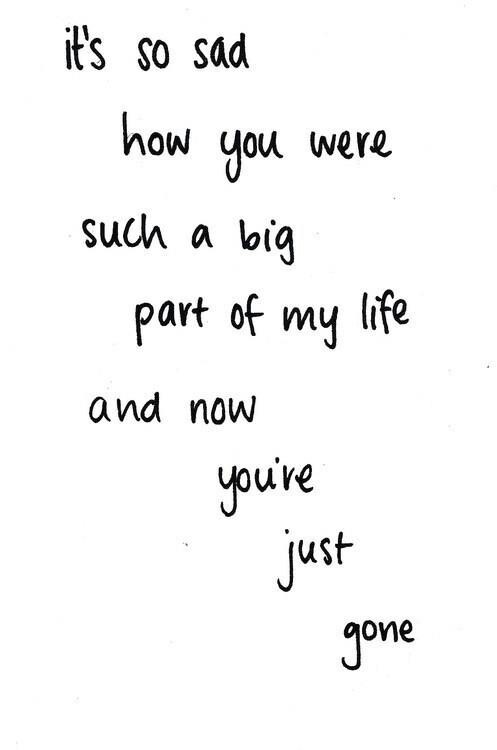 it's so sad
how you were
such a big
part of my life
and now
you're
just
gone